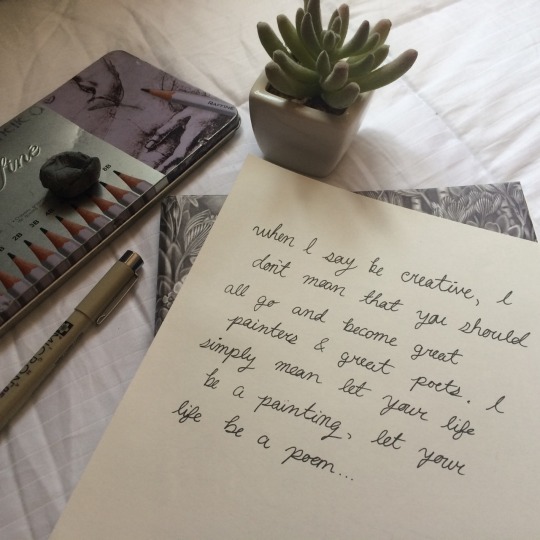 when I say be creative, I
don't mean that you should
all go and become great
painters & great poets. I
simply mean let your life
be a painting, let your
life be a poem...
fine
2B
6B